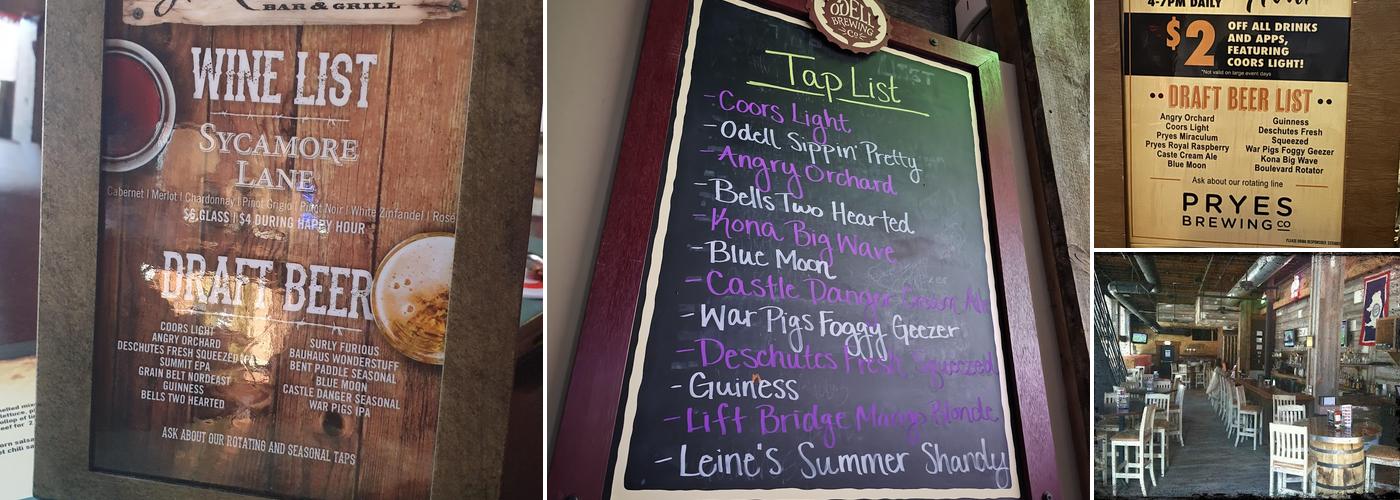 BAR & GRILL
WINE LIST
SYCAMORE
LANE
Cabernet | Merlot | Chardonnay | Pinot Grigio | Pinot Noir | White Zinfandel | Rosé
$6 GLASS | $4 DURING HAPPY HOUR
DRAFT BEER
COORS LIGHT
ANGRY ORCHARD
DESCHUTES FRESH SQUEEZED
SUMMIT EPA
GRAIN BELT NORDEAST
GUINNESS
BELLS TWO HEARTED
SURLY FURIOUS
BAUHAUS WONDERSTUFF
BENT PADDLE SEASONAL
BLUE MOON
CASTLE DANGER SEASONAL
WAR PIGS IPA
ASK ABOUT OUR ROTATING AND SEASONAL TAPS
ODELL
BREWING
CO
Tap List
-Coors Light
-Odell Sippin' Pretty
-Angry Orchard
-Bells Two Hearted
-Kona Big Wave
-Blue Moon
-Castle Danger Cream Ale
-War Pigs Foggy Geezer
-Deschutes Fresh Squeezed
-Guiness
-Lift Bridge Mango Blonde
-Leine's Summer Shandy
4-7PM DAILY
Hour
$2
OFF ALL DRINKS
AND APPS,
FEATURING
COORS LIGHT!
*Not valid on large event days
DRAFT BEER LIST
Angry Orchard
Coors Light
Pryes Miraculum
Pryes Royal Raspberry
Caste Cream Ale
Blue Moon
Guinness
Deschutes Fresh
Squeezed
War Pigs Foggy Geezer
Kona Big Wave
Boulevard Rotator
Ask about our rotating line
PRYES
BREWING CO